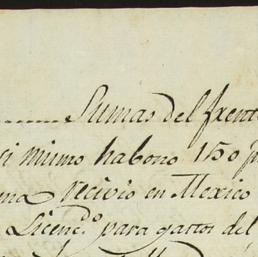 Sumas del frent
si mismo habono 150 p
ma recivio en Mexico
Licenc.º para gastos del